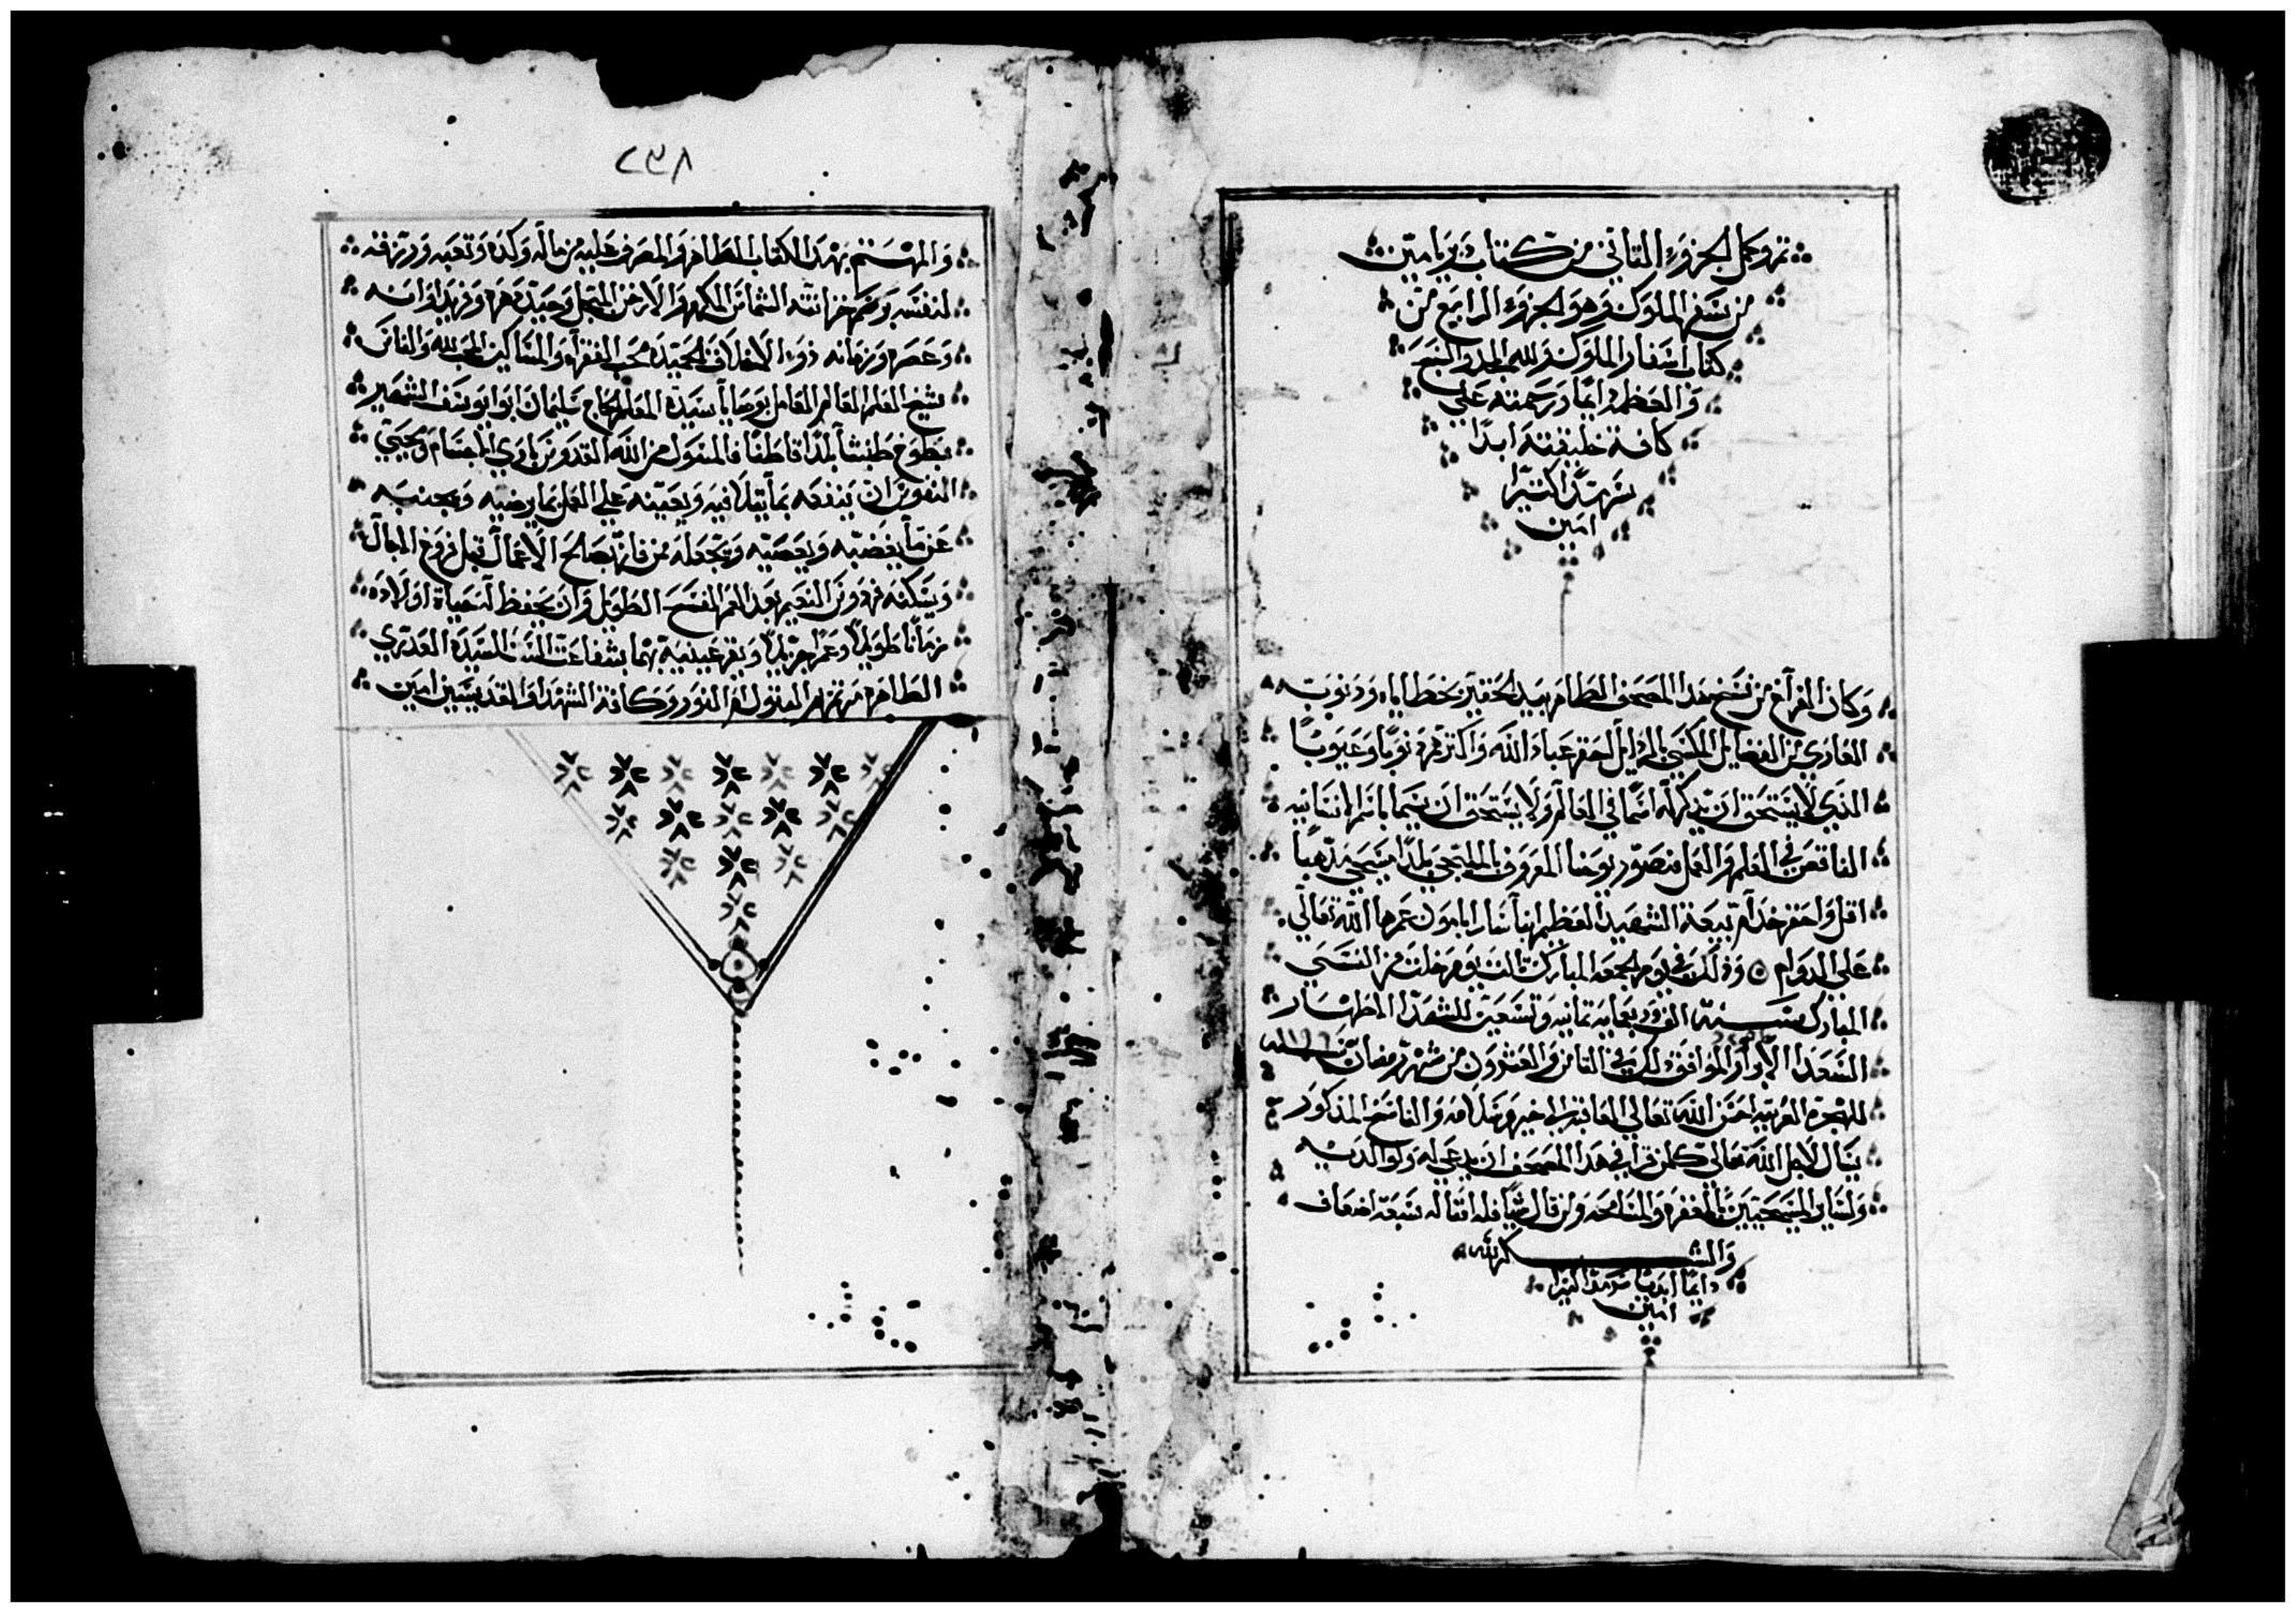 تم وكمل الجزوء التاني من كتاب بريامين
من سفر الملوك وهو الجزوء الرابع من
كتاب اسفار الملوك ولله المجد والسبح
والعظمه دايما ورحمته علي
كافة خليقته ابدا
سرمدا كثيرا
امين
وكان الفراغ من نسخ هذا المصحف الطاهر بيد الحقير بخطاياه وذنوبه
العاري من الفضايل المكتسي بالردايل احقر عباد الله واكترهم ذنوبا وعيوبا
الذي لا يستحق ان يذكر له اسما في العالم ولا يستحق ان يسما باسم انسانيه
الناقص في العلم والعمل منصور يوحنا المعروف بالملتجي بلدا مسيحي مذهبا
اقل واحقر خدام بيعة الشهيد العظيم انبا سارابامون عمرها الله تعالي
علي الدوام ○ وذلك في يوم الجمعه المبارك تالت يوم خلت من النسي
المبارك سنة الف وربعمايه تمانيه وتسعين للشهدا الاطهار
السعدا الابرار الموافق ذلك في التامن والعشرون من شهر رمضان سنه
للهجره العربيه احسن الله تعالي العاقبه الي خير وسلامه والناسخ المذكور
يسال لاجل الله تعالي كلمن قرا في هذا المصحف ان يدعي له ولوالديه
ولساير المسيحيين بالمغفره والمسامحه ومن قال شيا فله امتاله سبعة اضعاف
والشكر لله
دايما ابديا سرمدا كثيرا
امين
٢٣٨
والمهتم بهذا الكتاب الطاهر والصرف عليه من ماله وكده وتعبه ورزقه
لنفسه وضم خزانته الشماس المكرم والارخن المبجل وحيد دهره وفريد اوانه
وعصره وزمانه ذو الاخلاق الحميده محب الفقرا والمساكين المحب لله والناس
شيخ العلم العالم العامل بوصايا سيده المعلم الحاج سليمان ابو ابو يوسف الشهير
بطوخ طنبشا بلدا قاطنا فالمسوول من الله القدوس باري الاجسام ومحيي
النفوس ان ينفعه بما يتلا فيه ويعينه علي العمل بما يرضيه ويجنبه
عن ما يغضبه ويعصيه ويجعله ممن فاز بصالح الاعمال قبل فروغ الاجال
ويسكنه فردوس النعيم بعد العمر الفسيح الطويل وان يحفظ له حياة اولاده
زمانا طويلا وعمرا جزيلا ويقر عينيه بهما بشفاعت الست السيده العدري
الطاهره مرتمريم البتول ام النور وكافة الشهدا والقديسين امين